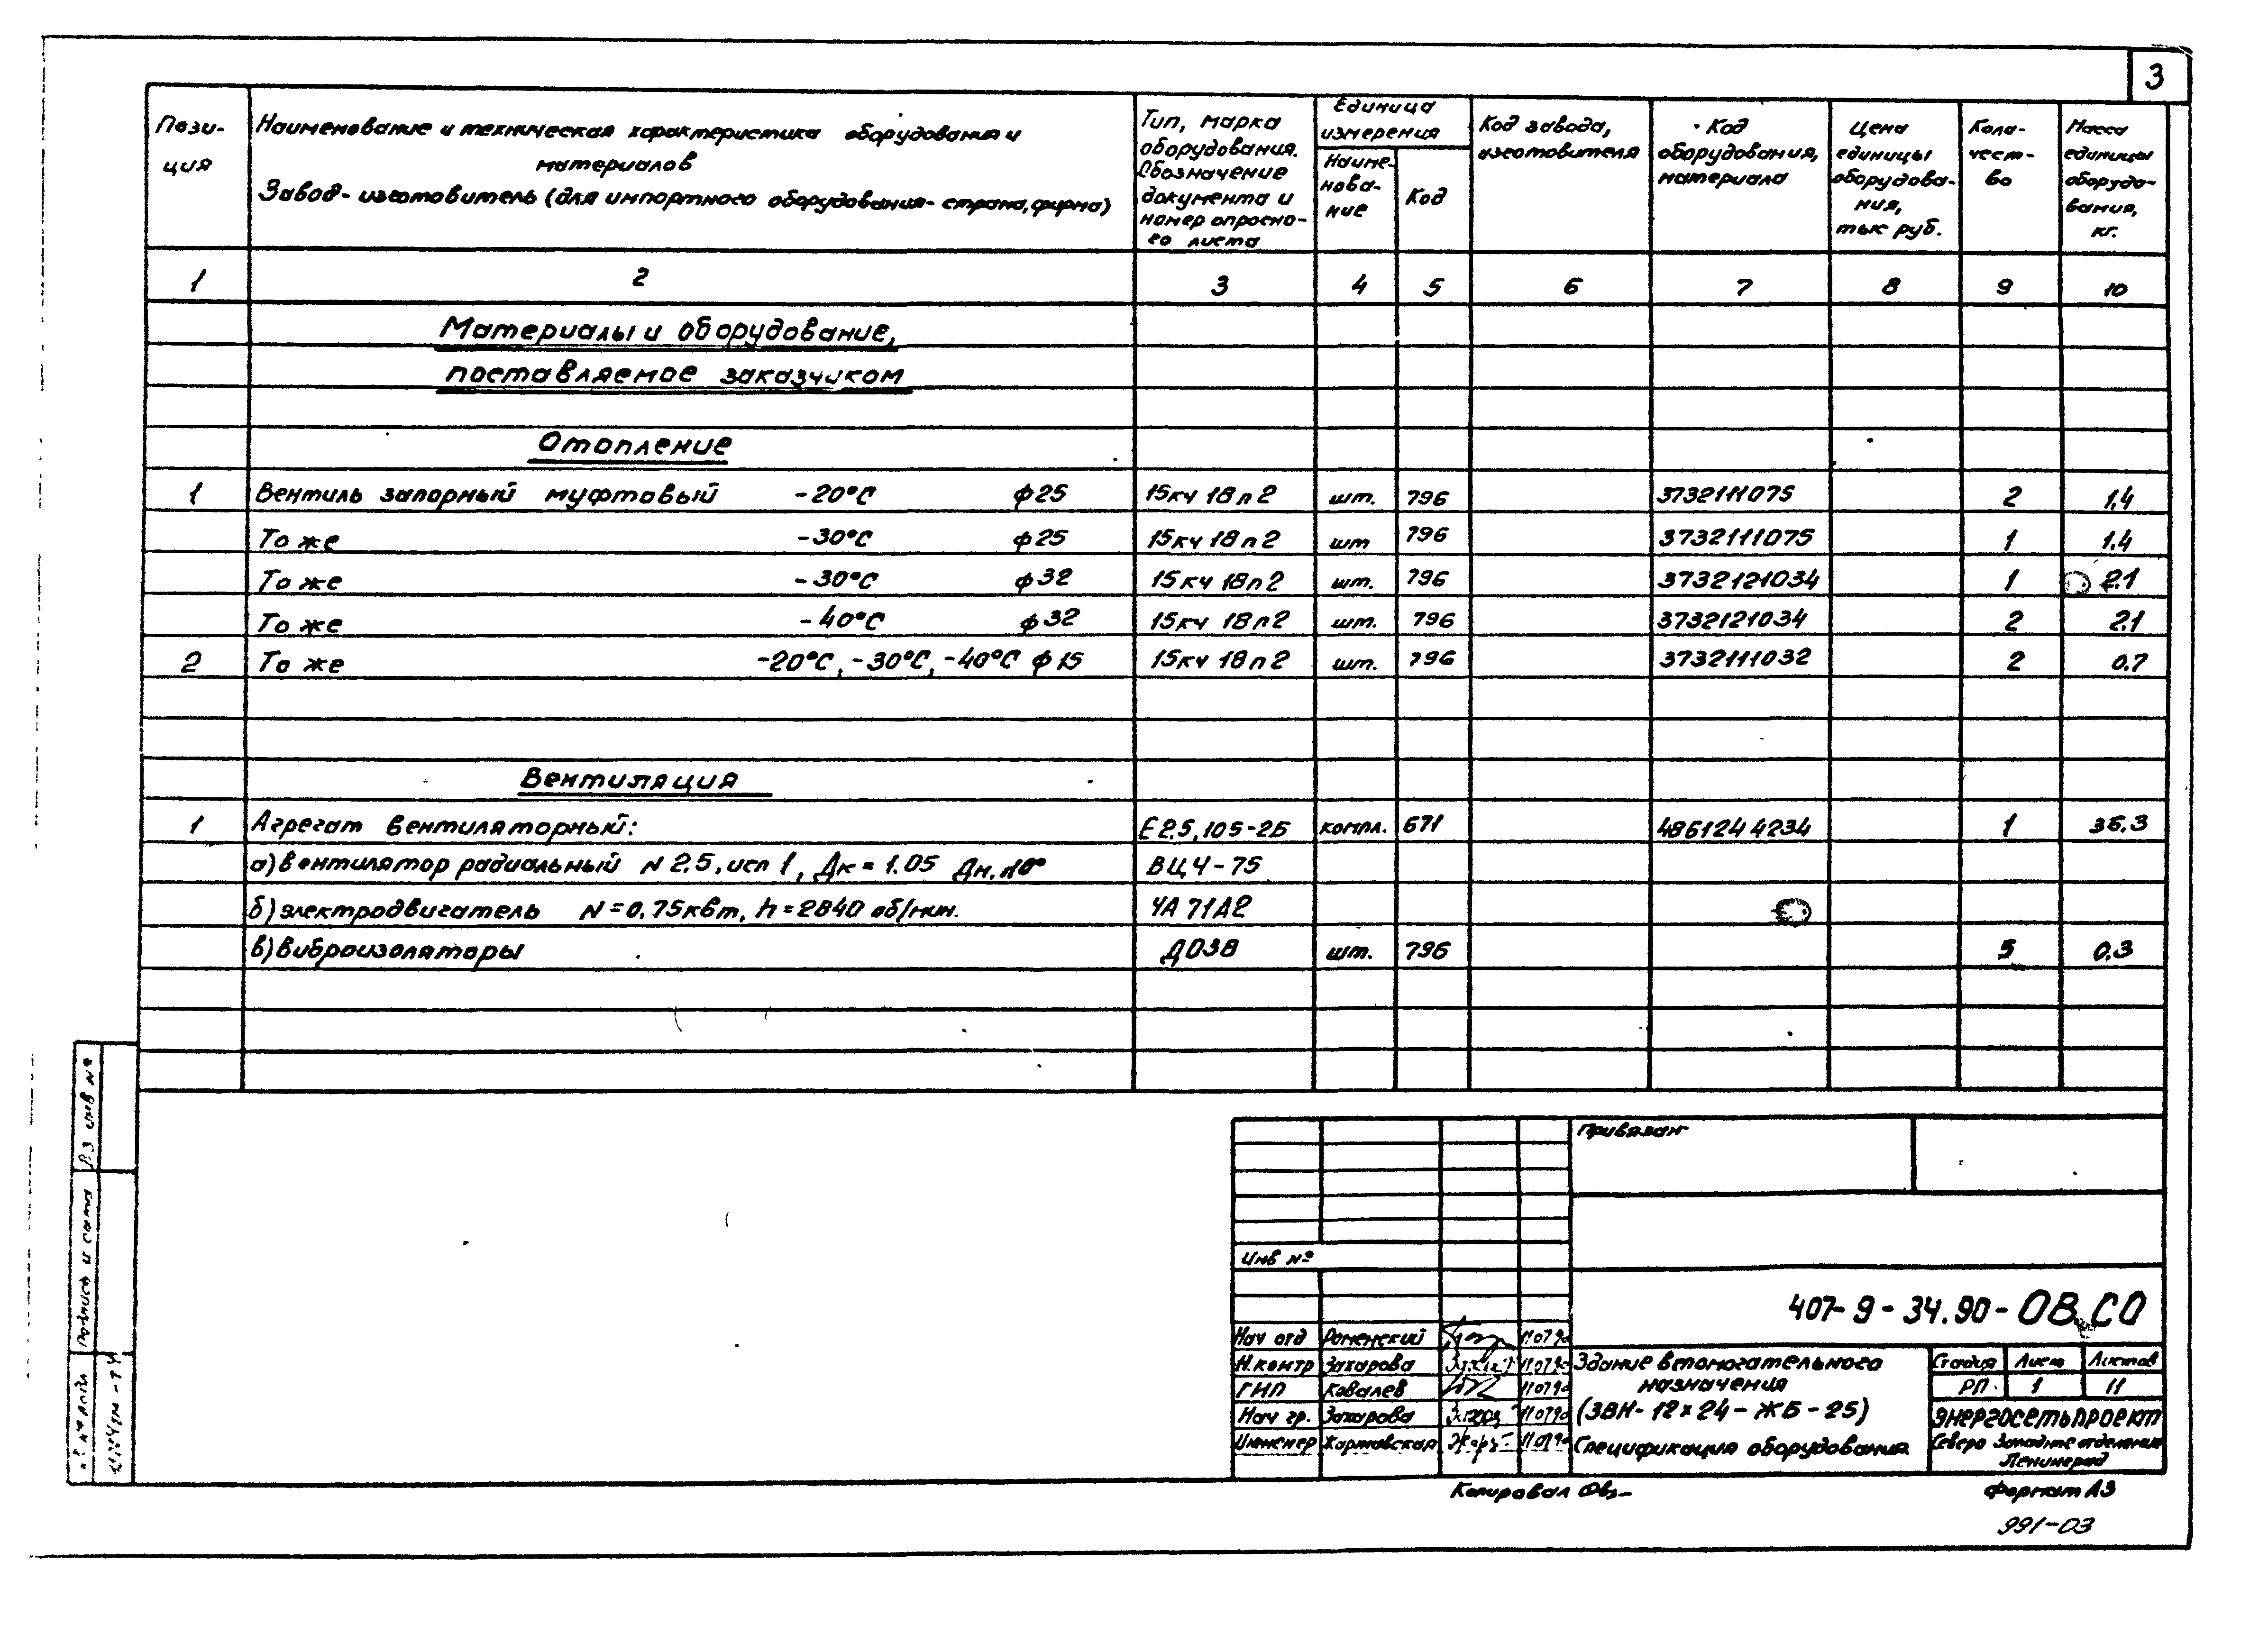 3
Пози-
ция
Наименование и техническая характеристика оборудования и
материалов
Завод-изготовитель (для импортного оборудования-страна, фирма)
Тип, марка
оборудования.
Обозначение
документа и
номер опросно-
го листа
Единица
измерения
Наиме-
нова-
ние
Код
Код завода,
изготовителя
Код
оборудования,
материала
Цена
единицы
оборудова-
ния,
тыс руб.
Коли-
чест-
во
Масса
единицы
оборудо-
вания,
кг.
1 2 3 4 5 6 7 8 9 10
Материалы и оборудование,
поставляемое заказчиком
Отопление
1 Вентиль запорный муфтовый -20°С ф25 15кч 18п2 шт. 796 3732111075 2 1.4
То же -30°С ф25 15кч 18п2 шт 796 3732111075 1 1.4
То же -30°С ф32 15кч 18п2 шт. 796 3732121034 1 2.1
То же -40°С ф32 15кч 18п2 шт. 796 3732121034 2 2.1
2 То же -20°С, -30°С, -40°С ф15 15кч 18п2 шт. 796 3732111032 2 0.7
Вентиляция
1 Агрегат вентиляторный: Е2.5,105-2Б компл. 671 4861244234 1 36.3
а) вентилятор радиальный N 2.5, исп 1, Дк = 1.05 Дн. ВЦ4-75
б) электродвигатель N = 0.75квт, n = 2840 об/мин. 4А71А2
в) виброизоляторы ДО38 шт. 796 5 0.3
Вз инв №
Подпись и дата
Привязан
Инв №
407-9-34.90-ОВ.СО
Нач отд Роменский 11.07.90
Н.контр Захарова 11.07.90
ГИП Ковалев 11.07.90
Нач гр. Захарова 11.07.90
Инженер 11.07.90
Здание вспомогательного
назначения
(ЗВН-12х24-ЖБ-25)
Спецификация оборудования
Стадия Лист Листов
РП 1 11
Энергосетьпроект
Северо Западное отделение
Ленинград
Копировал
Формат А3
991-03